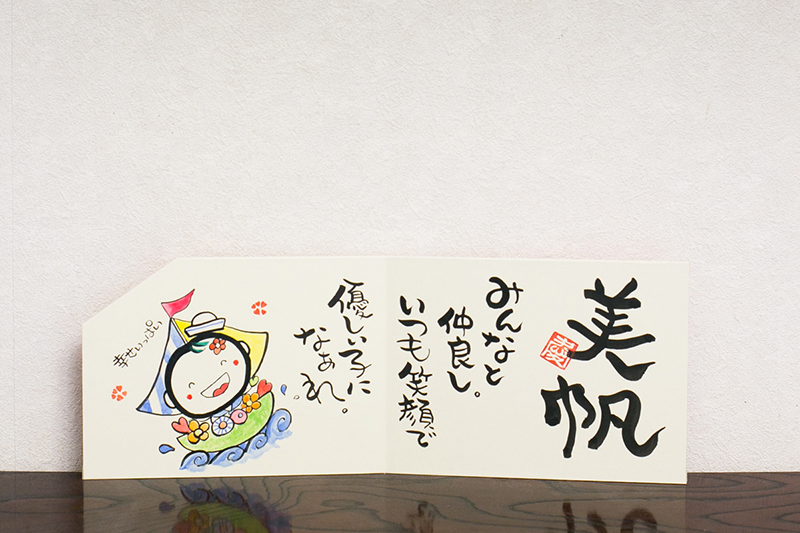 美帆
みんなと
仲良し。
いつも笑顔で
優しい子に
なぁれ。
幸せいっぱい